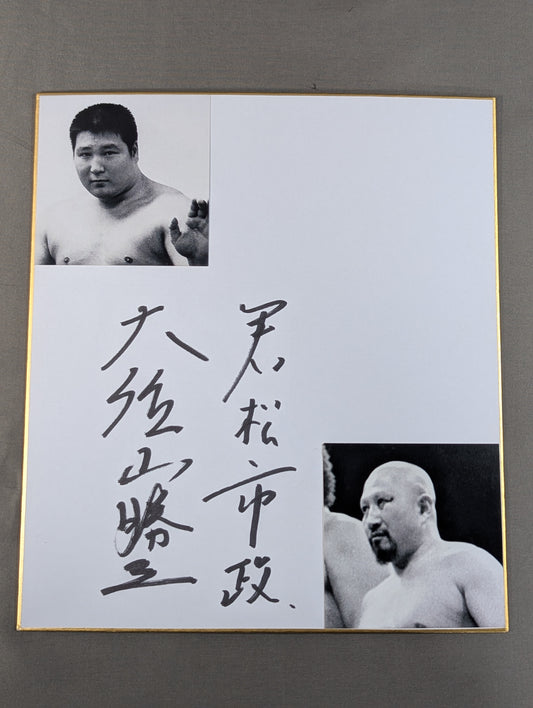 若松市政
大位山勝三